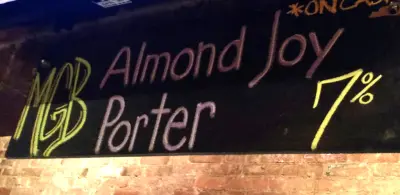 *ON CAS
MGB Almond Joy
Porter 7%